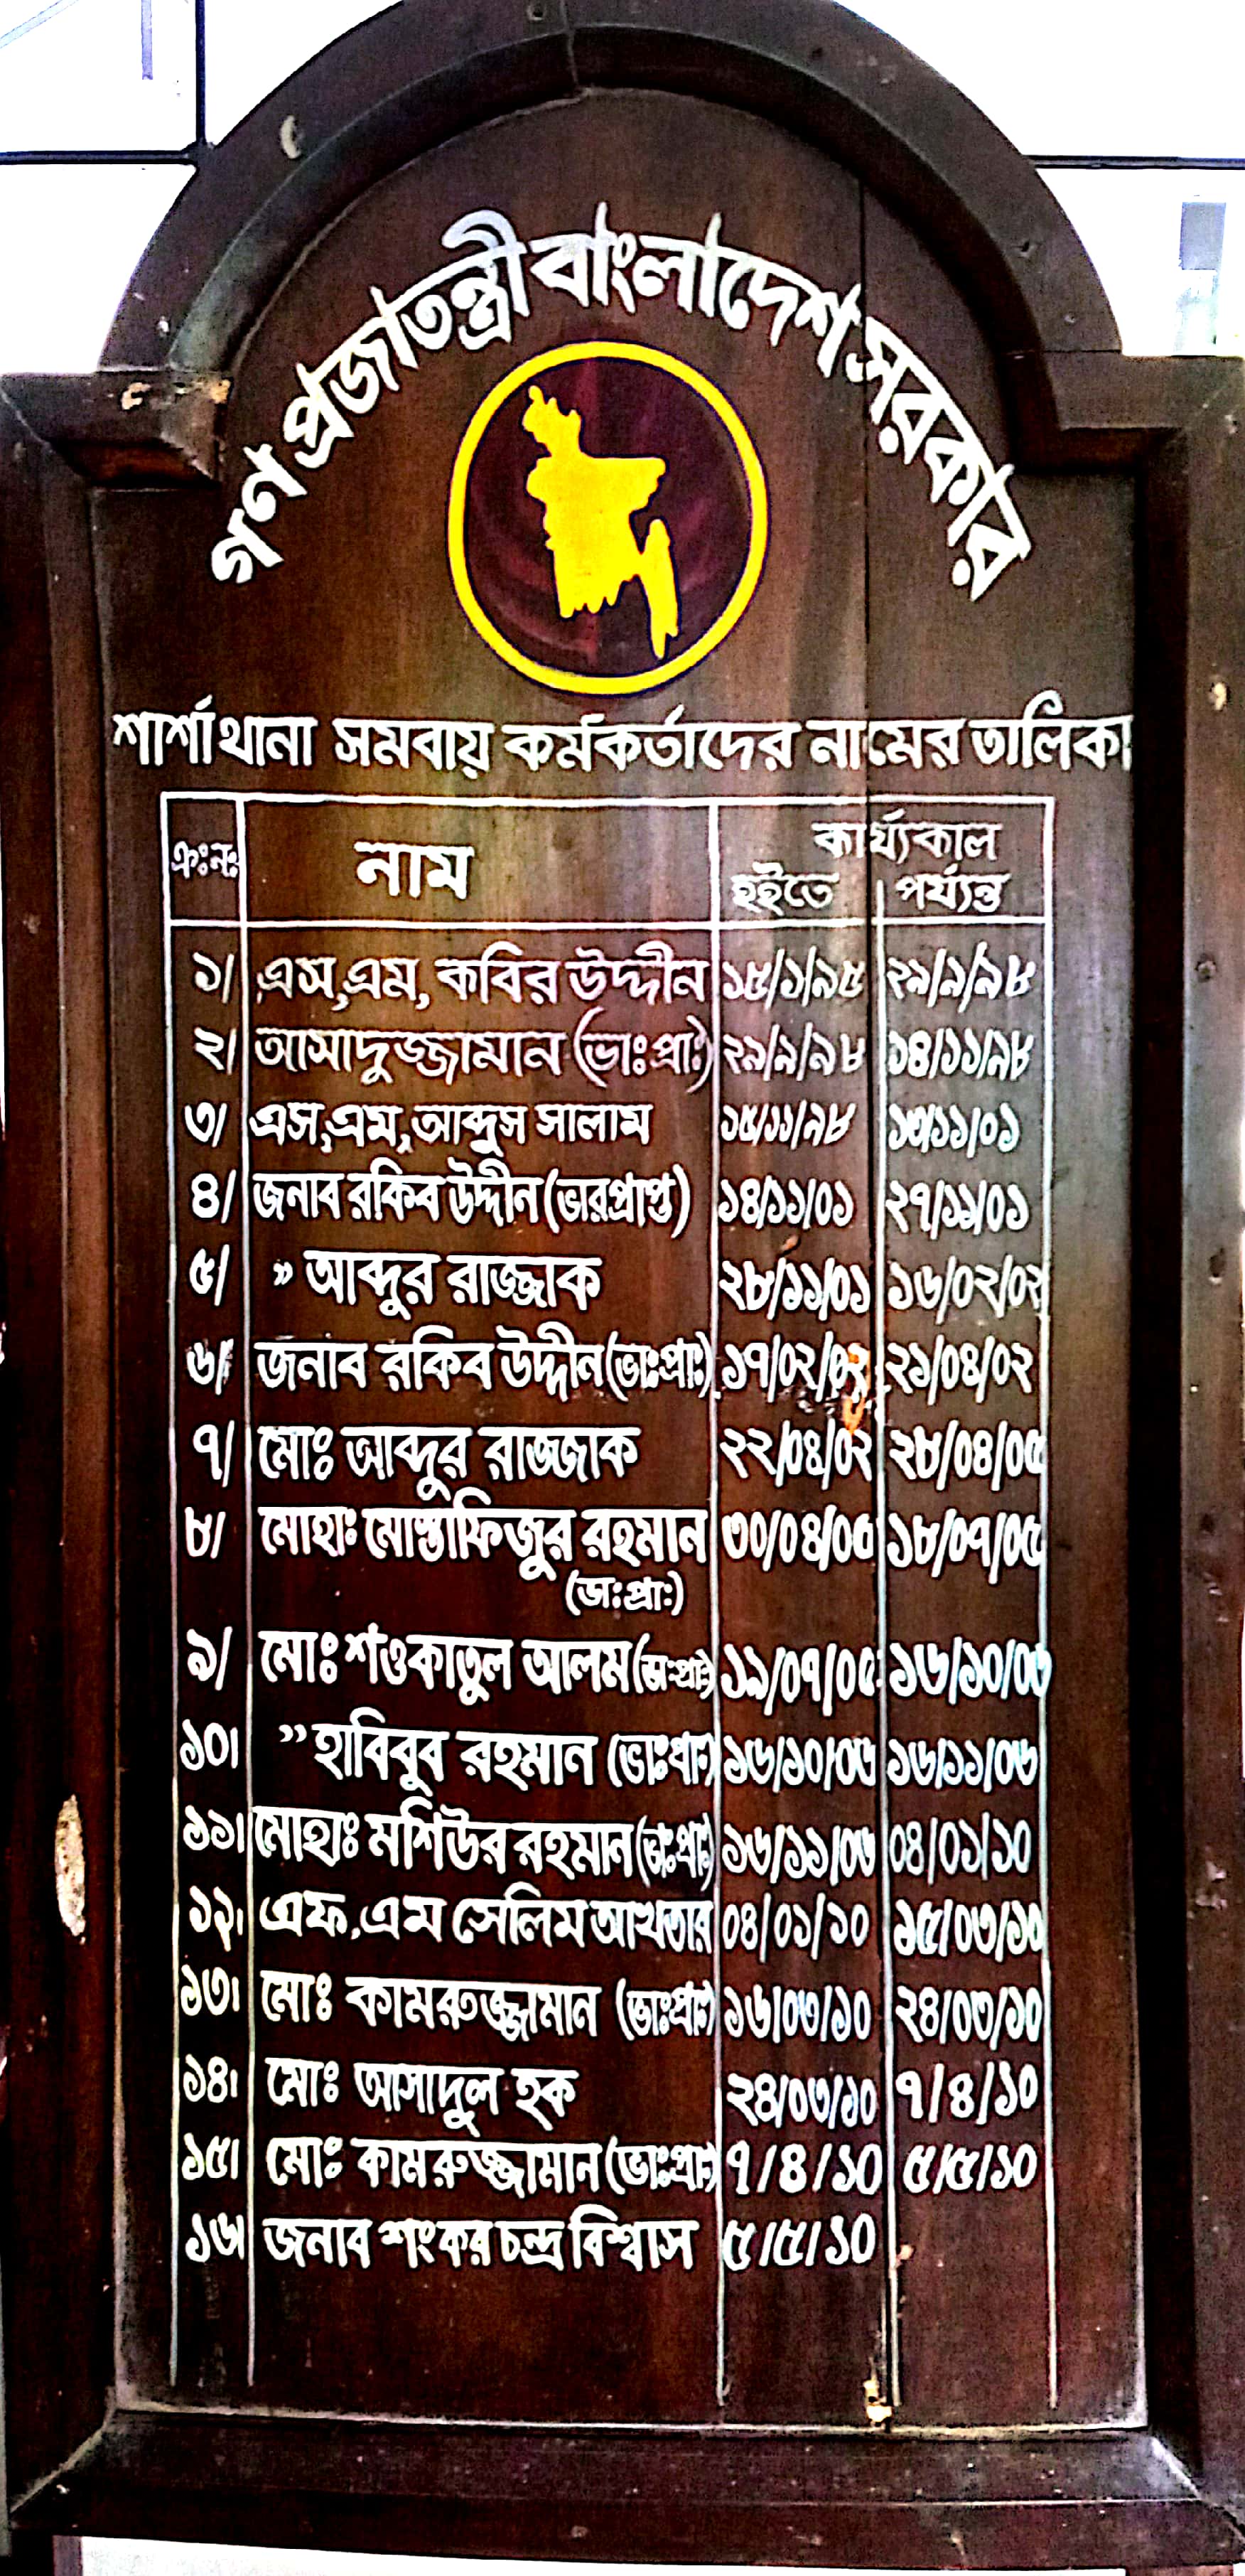 গণ প্রজাতন্ত্রী বাংলাদেশ সরকার
শার্শা থানা সমবায় কর্মকর্তাদের নামের তালিকা
ক্রঃনঃ নাম কার্য্যকাল
হইতে পর্য্যন্ত
১/ এস,এম, কবির উদ্দীন ১৫/১/৯৫ ২৯/৯/৯৮
২। আসাদুজ্জামান (ভাঃপ্রাঃ) ২৯/৯/৯৮ ১৪/১১/৯৮
৩/ এস,এম,আব্দুস সালাম ১৫/১১/৯৮ ১৩/১১/০১
৪/ জনাব রকিব উদ্দীন (ভারপ্রাপ্ত) ১৪/১১/০১ ২৭/১১/০১
৫/ " আব্দুর রাজ্জাক ২৮/১১/০১ ১৬/০২/০২
৬/ জনাব রকিব উদ্দীন (ভাঃপ্রাঃ) ১৭/০২/০২ ২১/০৪/০২
৭/ মোঃ আব্দুর রাজ্জাক ২২/০৪/০২ ২৮/০৪/০৫
৮/ মোহাঃ মোস্তাফিজুর রহমান ৩০/০৪/০৫ ১৮/০৭/০৫
(ভাঃপ্রাঃ)
৯/ মোঃ শওকাতুল আলম (ভাঃপ্রাঃ) ১৯/০৭/০৫ ১৬/১০/০৬
১০। " হাবিবুব রহমান (ভাঃপ্রাঃ) ১৬/১০/০৬ ১৬/১১/০৬
১১। মোহাঃ মশিউর রহমান (ভাঃপ্রাঃ) ১৬/১১/০৬ ০৪/০১/১০
১২। এফ,এম সেলিম আখতার ০৪/০১/১০ ১৫/০৩/১০
১৩। মোঃ কামরুজ্জামান (ভাঃপ্রাঃ) ১৬/০৩/১০ ২৪/০৩/১০
১৪। মোঃ আসাদুল হক ২৪/০৩/১০ ৭/৪/১০
১৫। মোঃ কামরুজ্জামান (ভাঃপ্রাঃ) ৭/৪/১০ ৫/৫/১০
১৬। জনাব শংকর চন্দ্র বিশ্বাস ৫/৫/১০